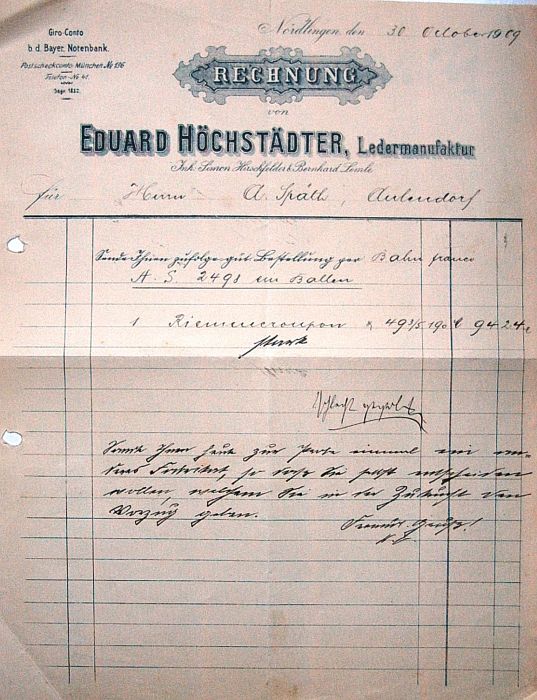 Giro-Conto
b. d. Bayer. Notenbank.
Postscheckconto München No 136
Telefon-No 41.
Gegr. 1832.
Nördlingen den 30 October 1909
RECHNUNG
von
EDUARD HÖCHSTÄDTER, Ledermanufaktur
Inh. Simon Hirschfelder & Bernhard Lemle
für Herrn A. Späth, Aulendorf
Sende Ihnen zufolge gut. Bestellung per Bahn franco
A. S. 2498 ein Ballen
1 Riemencroupon 49 3/5 190 94 24
stark
schlecht
Sende Ihnen heute zur Probe einmal ein an-
deres Fabrikat, so daß Sie selbst entscheiden
wollen, welchem Sie in der Zukunft den
Vorzug geben.